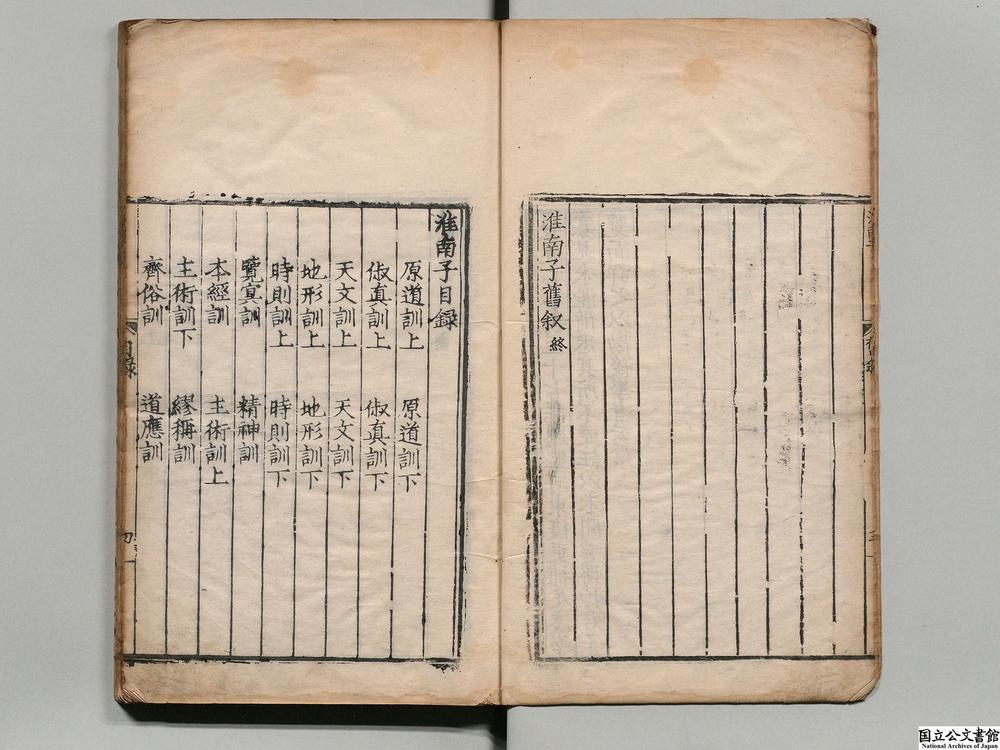 淮南子舊叙終
淮南子目録
原道訓上 原道訓下
俶真訓上 俶真訓下
天文訓上 天文訓下
地形訓上 地形訓下
時則訓上 時則訓下
覽冥訓 精神訓
本經訓 主術訓上
主術訓下 繆稱訓
齊俗訓 道應訓
目錄
国立公文書館
National Archives of Japan